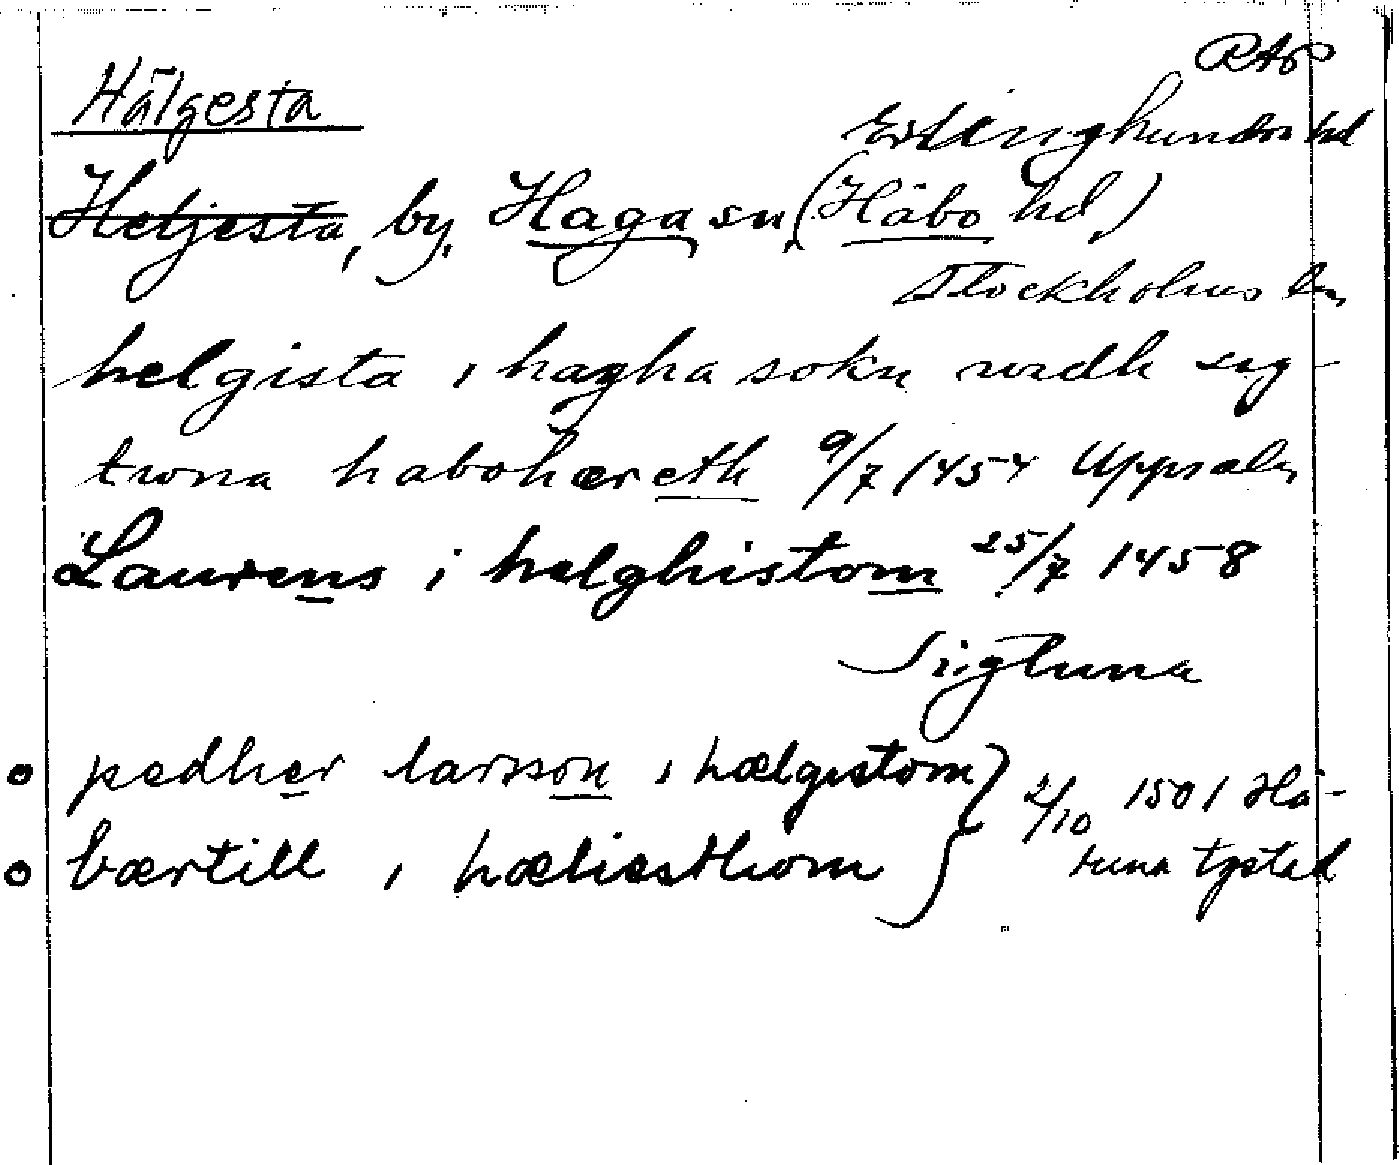 RAp
Hälgesta
Erlinghundra hd
Heljesta, by, Haga sn, (Håbo hd,)
Stockholms län
helgista i hagha sokn widh sig-
twna habohæreth 9/7 1454 Uppsala
Laurens i helghistom 25/7 1458
Sigtuna
o pædher larsson i hælgistom
2/10 1501 Hå-
o bærtill i hæliæsthom
tuna tgstad